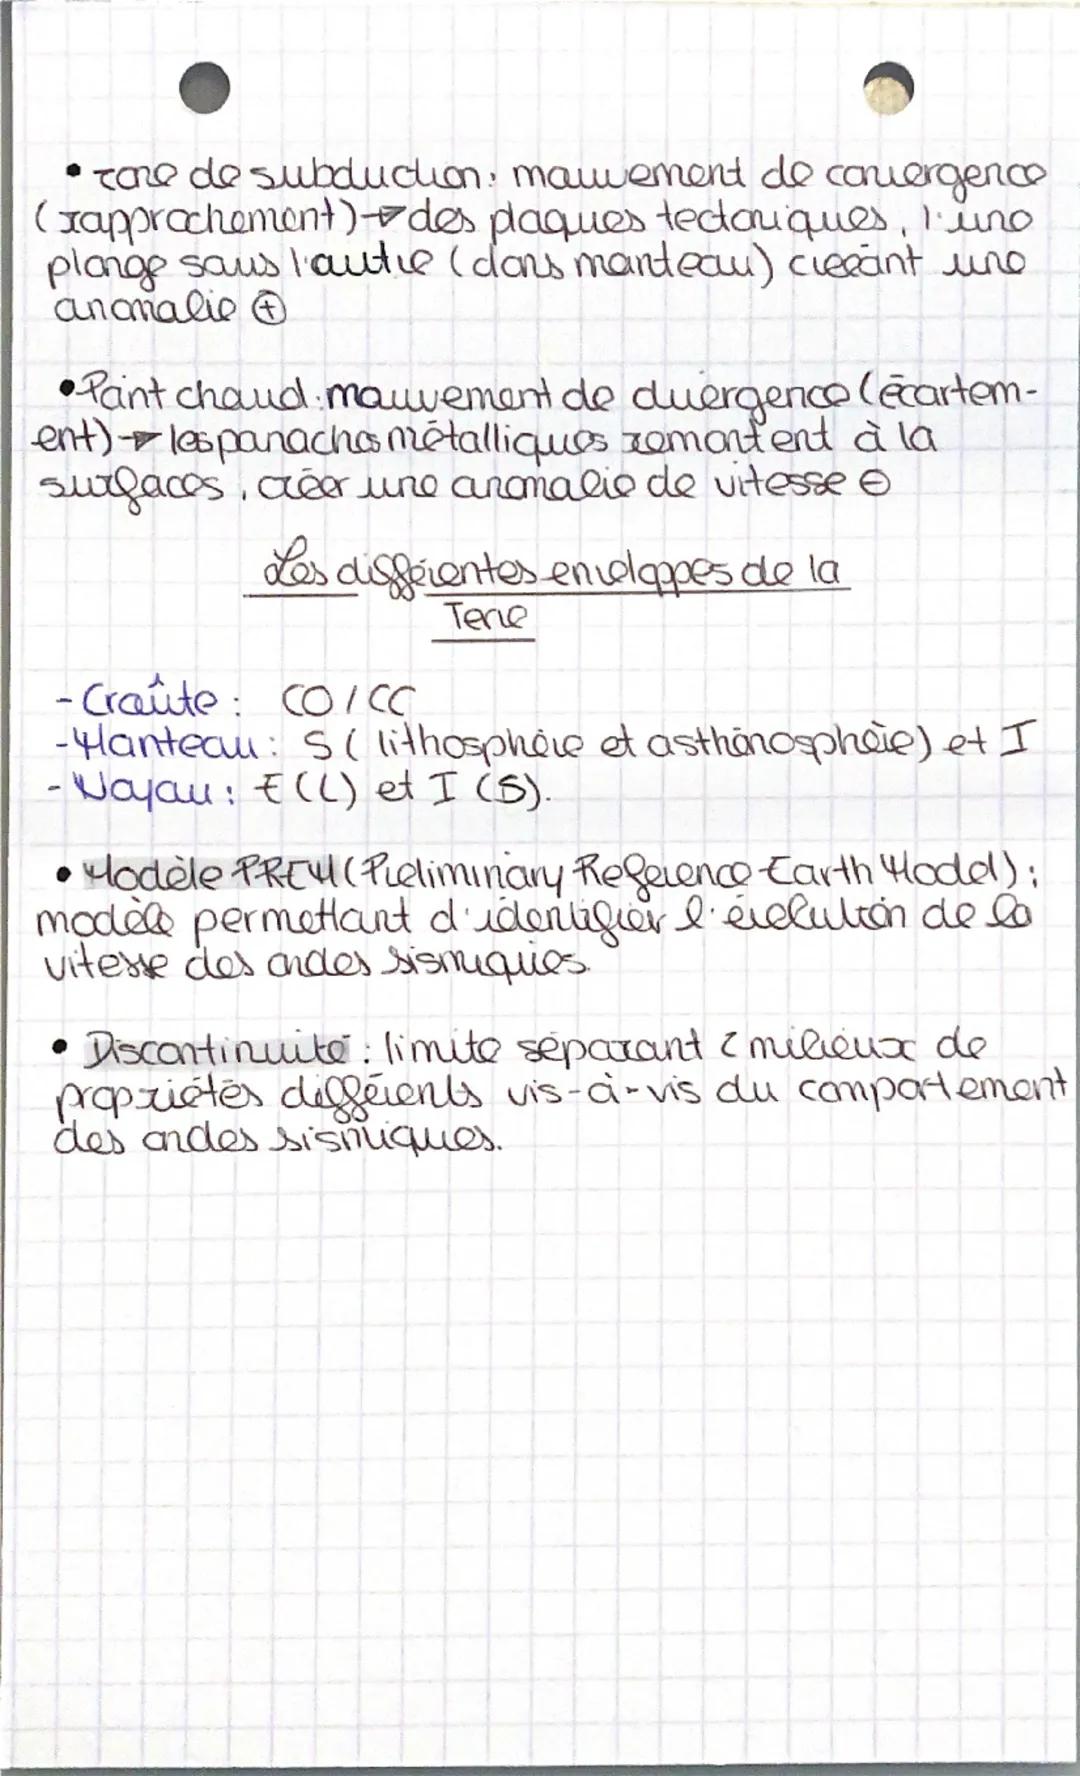 • zone de subduction : mouvement de convergence
(rapprochement) → des plaques tectoniques, l'une
plonge sous l'autre (dans manteau) créeant une
anomalie ⊕
• Point chaud : mouvement de divergence (écartem-
ent) → les panachos métalliques remontent à la
surfaces, créer une anomalie de vitesse ⊖
Les différentes enveloppes de la
Terre
- Croûte : CO / CC
- Manteau : S ( lithosphère et asthénosphère) et I
- Noyau : E (L) et I (S).
• Modèle PREM (Preliminary Reference Earth Model) ;
modèle permettant d'identifier l'évolution de la
vitesse des ondes sismiques.
• Discontinuité : limite séparant 2 milieux de
propriétés différents vis-à-vis du comportement
des ondes sismiques.